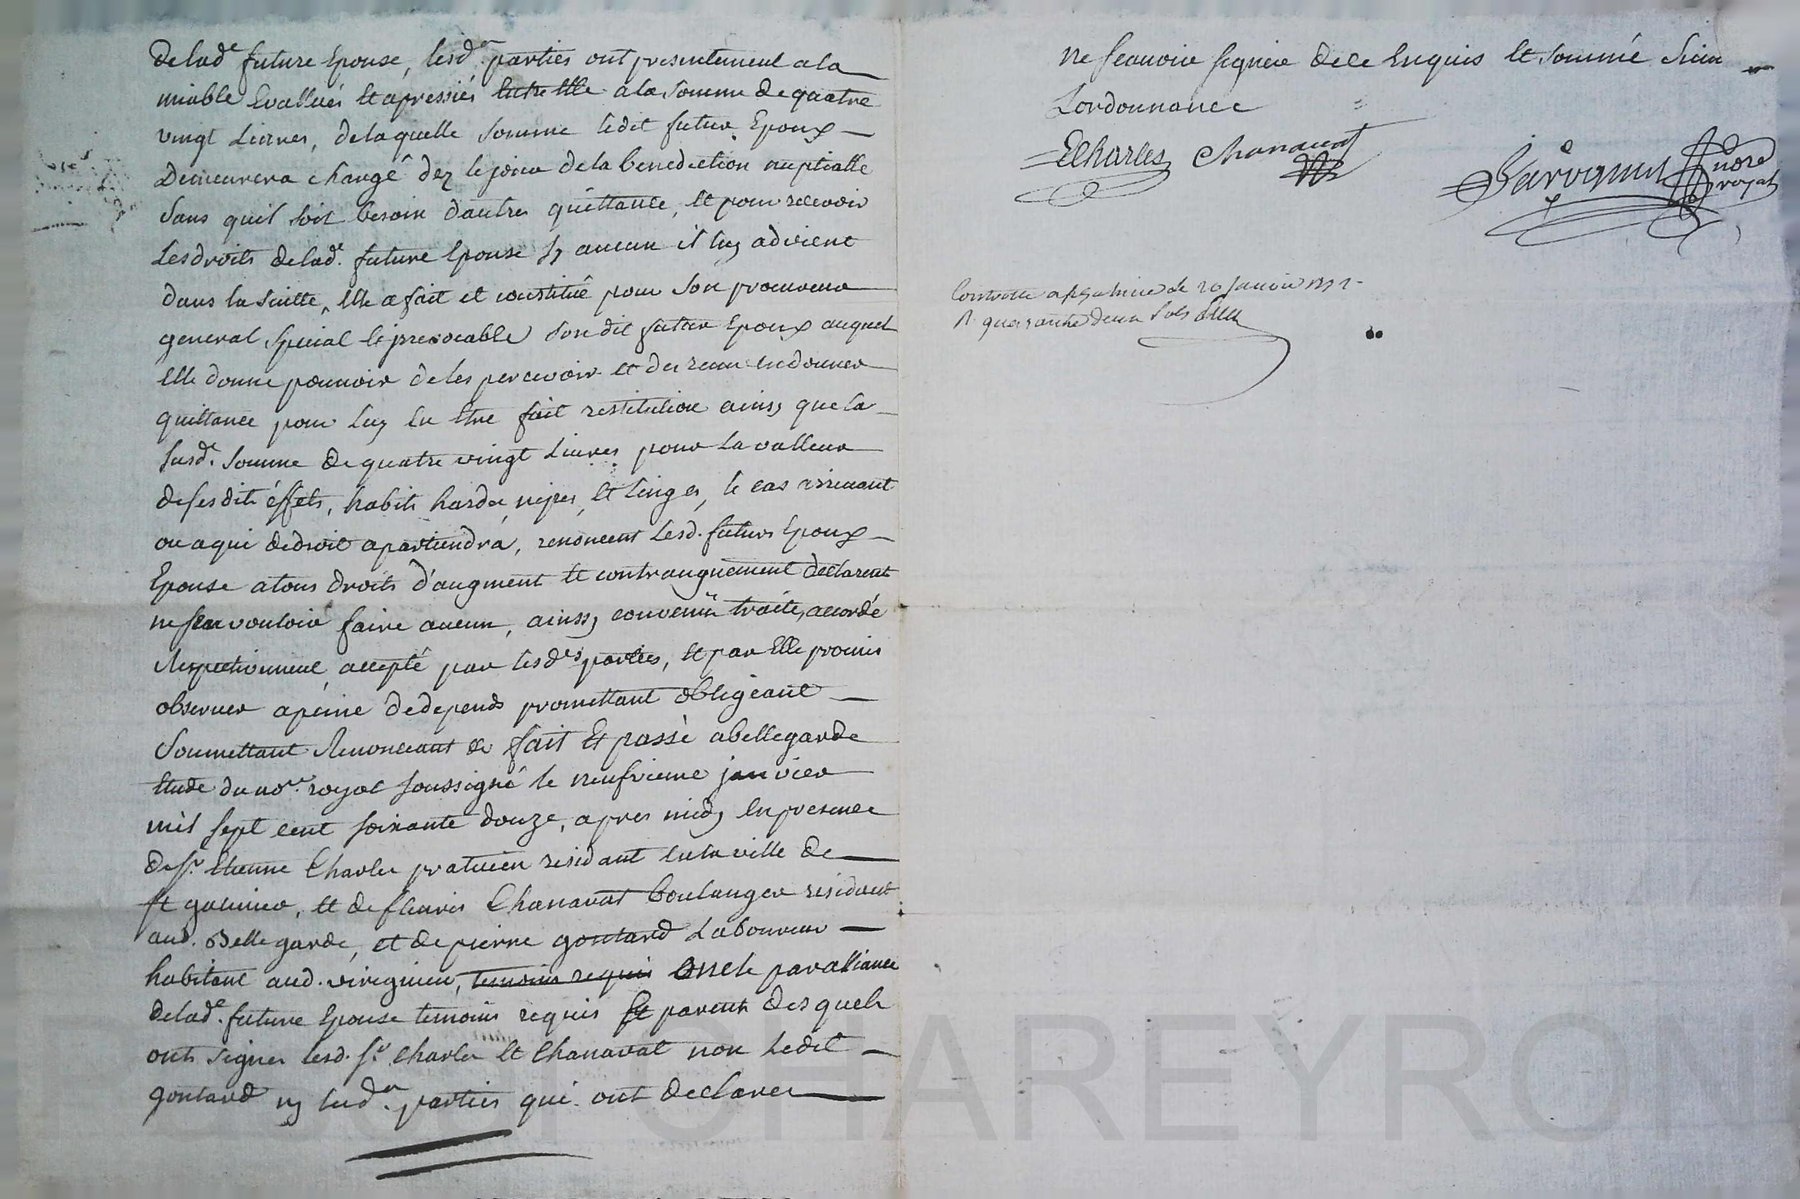 delad.e future Epouse, lesd.es parties ont presentement ala
miable Evalluées Et apressiés entre Elle ala somme de quatre
vingt Livres, delaquelle somme ledit futur Epoux
Demeurera chargé dez le jour dela benediction nuptialle
Sans quil soit besoin dautres quittance, Et pour recevoir
Les droits delad.e future Epouse sy aucun il luy advient
dans la suitte, Elle a fait et constitué pour son procureur
general special Et irrevocable sondit futur Epoux auquel
Elle donne pouvoir deles percevoir et du receu en donner
quittance pour luy En Etre fait restitution ainsy que la
susd. somme de quatre vingt Livres pour la valleur
desesdits éffets, habits hardes nipes, Et linges, le cas arrivant
ou aqui dedroit apartiendra, renoncent Lesd. futurs Epoux
Epouse a tous droits d'augment Et contraugnement declarent
ne sen vouloir faire aucun, ainsy convenü traité, accordé
Respectivement, accepté par lesd.es parties, Et par Elle promis
observer apeine dedepends promettant obligeant
Soumettant Renonceant &c fait Et passé abellegarde
Etude du no.re royal soussigné le neufvieme janvier
mil sept cent soixante douze, apres midy En presence
de s.r Etienne Charles praticien residant En la ville de
st galmier, Et de fleuris Chanavat boulanger residant
aud. Bellegarde, et de pierre goutard Laboureur
habitant aud. virignieu, temoins requis oncle par alliance
delad.e future Epouse temoins requis Et parents desquels
onts signes lesd. s.r Charles Et Chanavat non ledit
goutard ny lesd.es parties qui ont declarer
ne scauoir signer dece Enquis Et sommé Suivt
Lordonnance
ECharles Chanavat
nore royal
Controllé a st galmier le 20 janvier 1772
R quarante deux sols
CHAREYRON